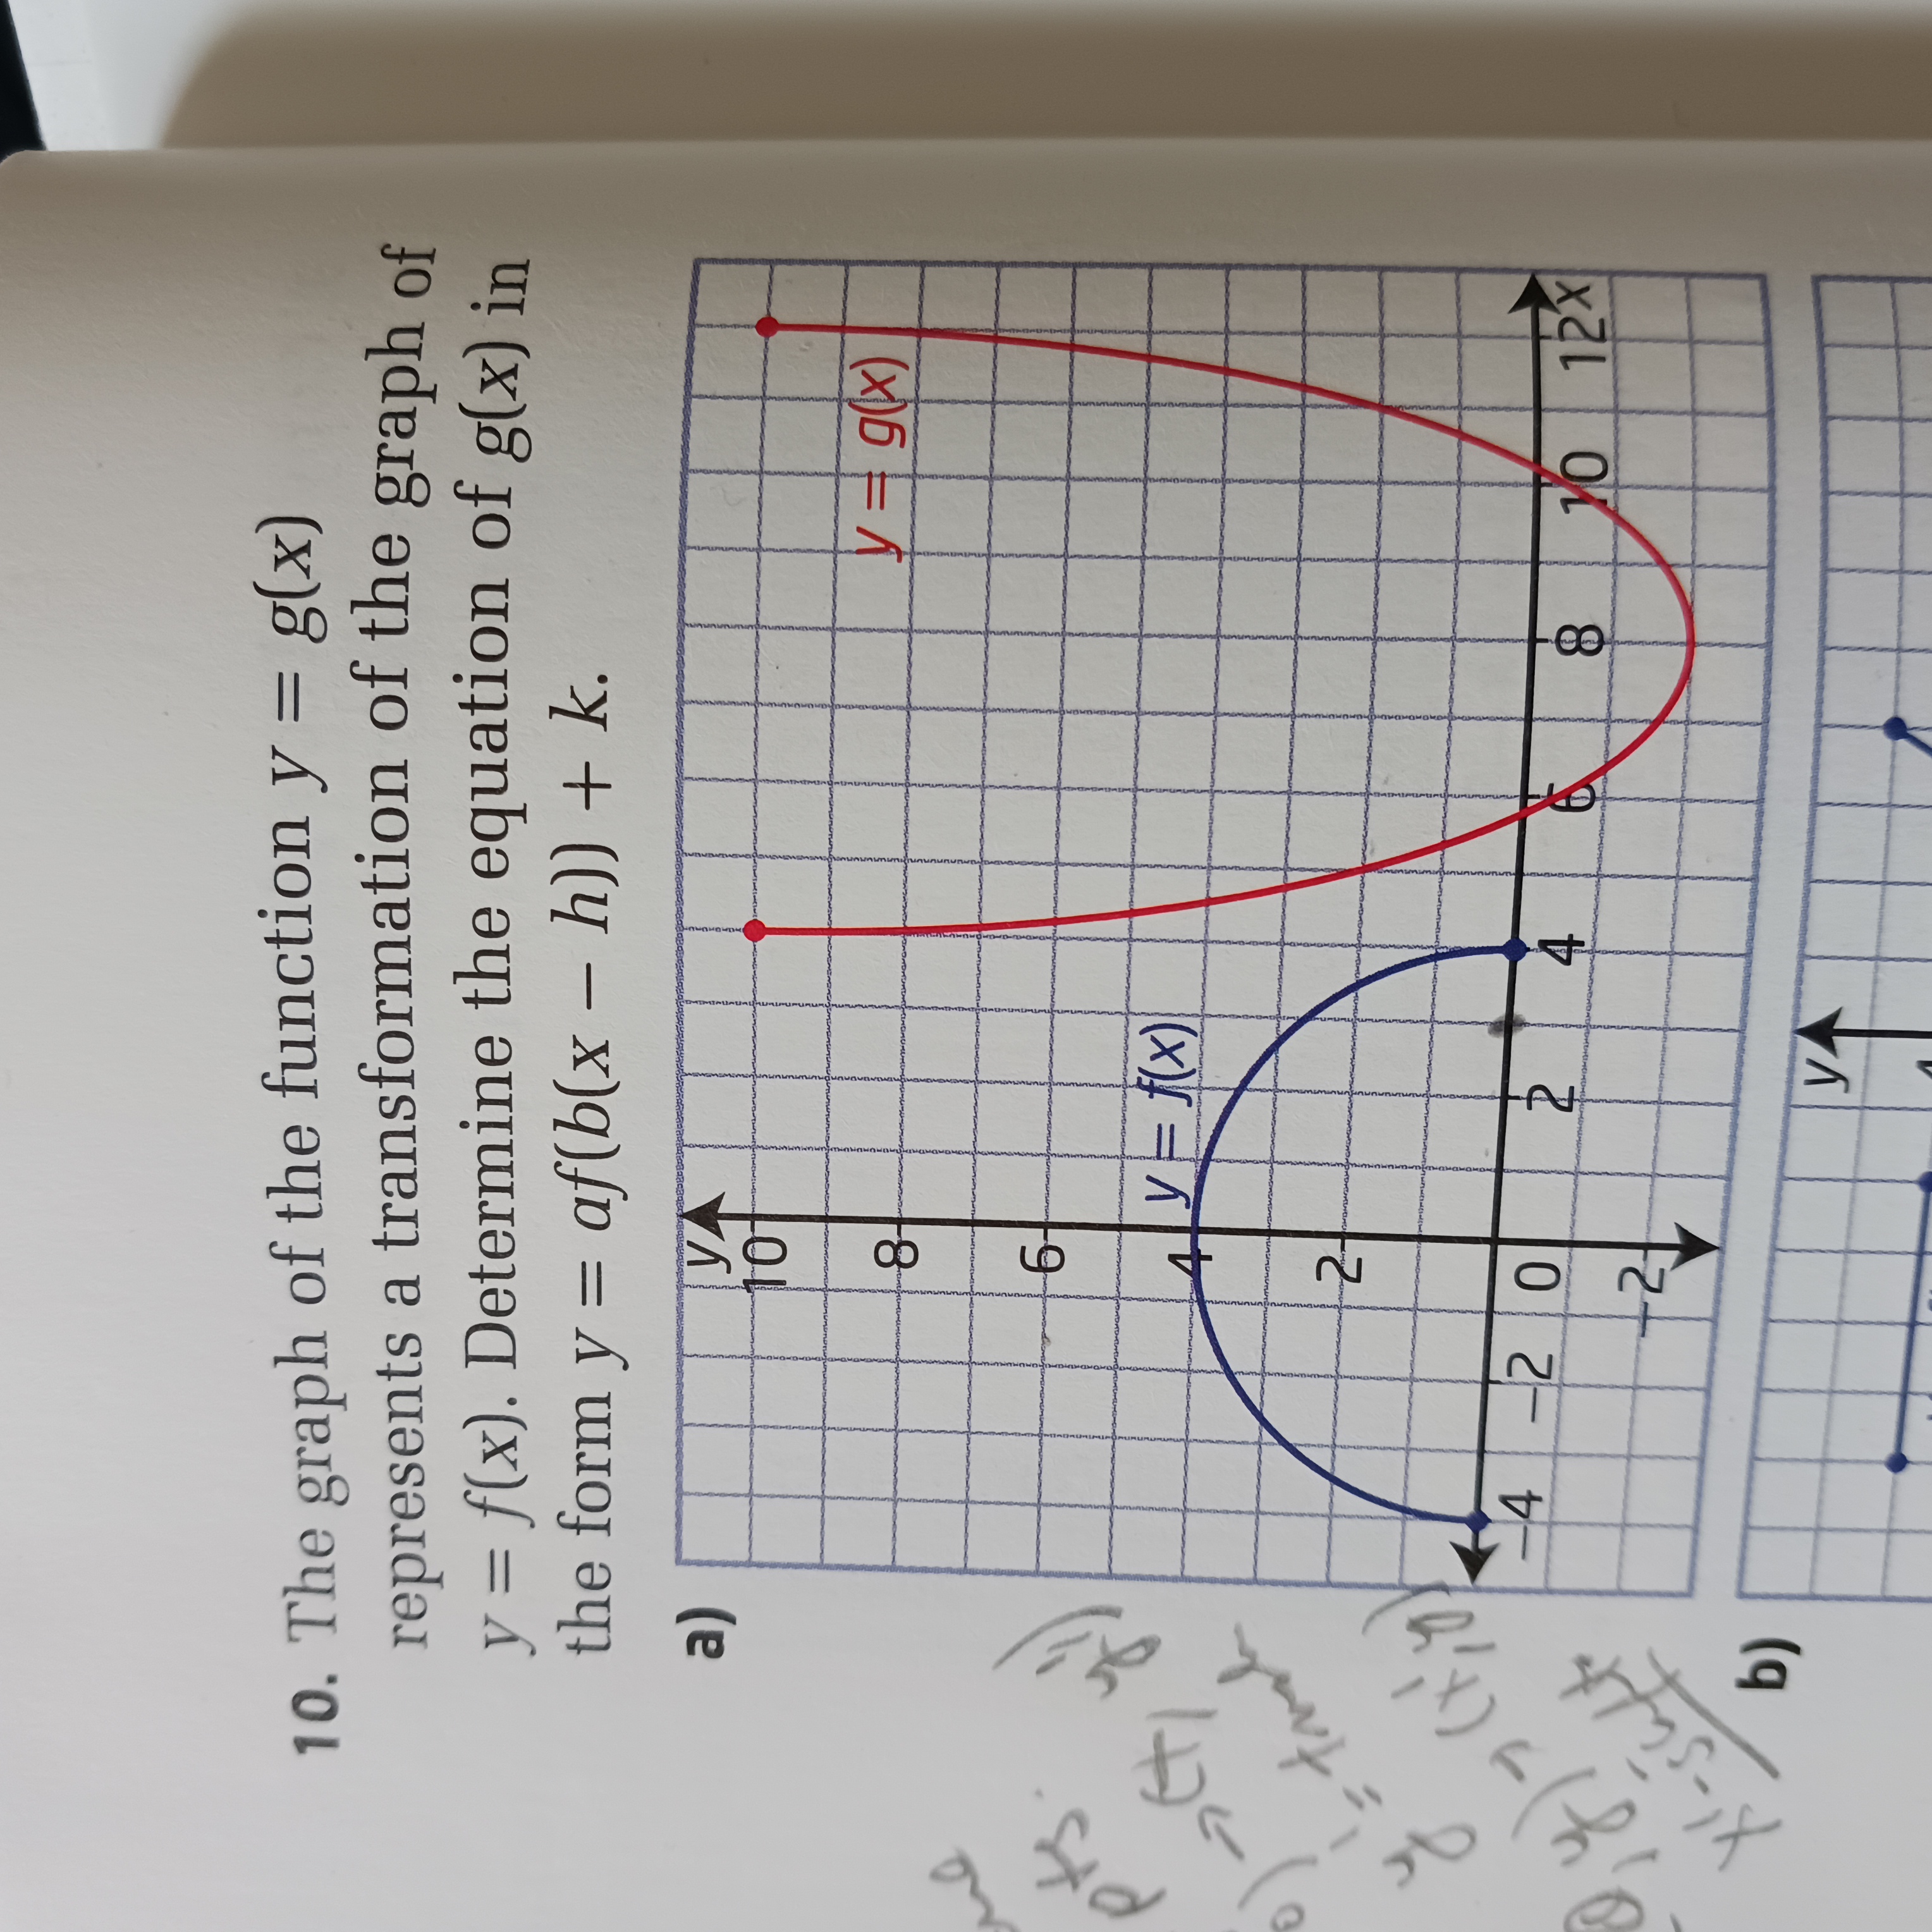 10. The graph of the function y = g(x)
represents a transformation of the graph of
y = f(x). Determine the equation of g(x) in
the form y = af(b(x − h)) + k.
a)
y
10
8
6
4
2
0
−2
−4 −2 2 4 6 8 10 12 x
y = f(x)
y = g(x)
b)
y